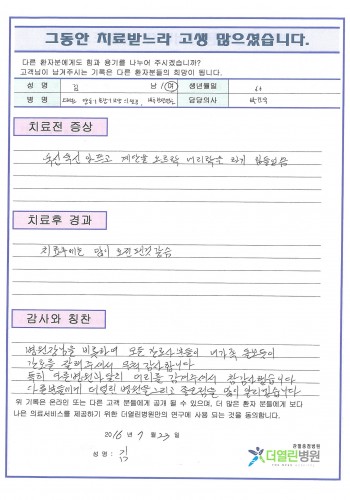 그동안 치료받느라 고생 많으셨습니다.
다른 환자분에게도 힘과 용기를 나누어 주시겠습니까?
고객님이 남겨주시는 기록은 다른 환자분들의 희망이 됩니다.
성 명 김 남 여 생년월일
병 명 담당의사
치료전 증상
욱신욱신 아프고 계단을 오르락 내리락 하기 힘들었음
치료후 경과
치료후에는 많이 호전된것 같음
감사와 칭찬
병원장님을 비롯하여 모든 간호사분들이 내가족 돌보듯이
간호를 잘해 주셔서 무척 감사합니다
특히 다른병원과 달리 머리를 감겨주셔서 참 감사했습니다
다른분들에게 더열린 병원을 그리고 좋은점을 많이 알리겠습니다
위 기록은 온라인 또는 다른 고객 분들에게 공개 될 수 있으며, 더 많은 환자 분들에게 보다
나은 의료서비스를 제공하기 위한 더열린병원만의 연구에 사용 되는 것을 동의합니다.
2016 년 7 월 23 일
성명 : 김
관절중점병원
더열린병원